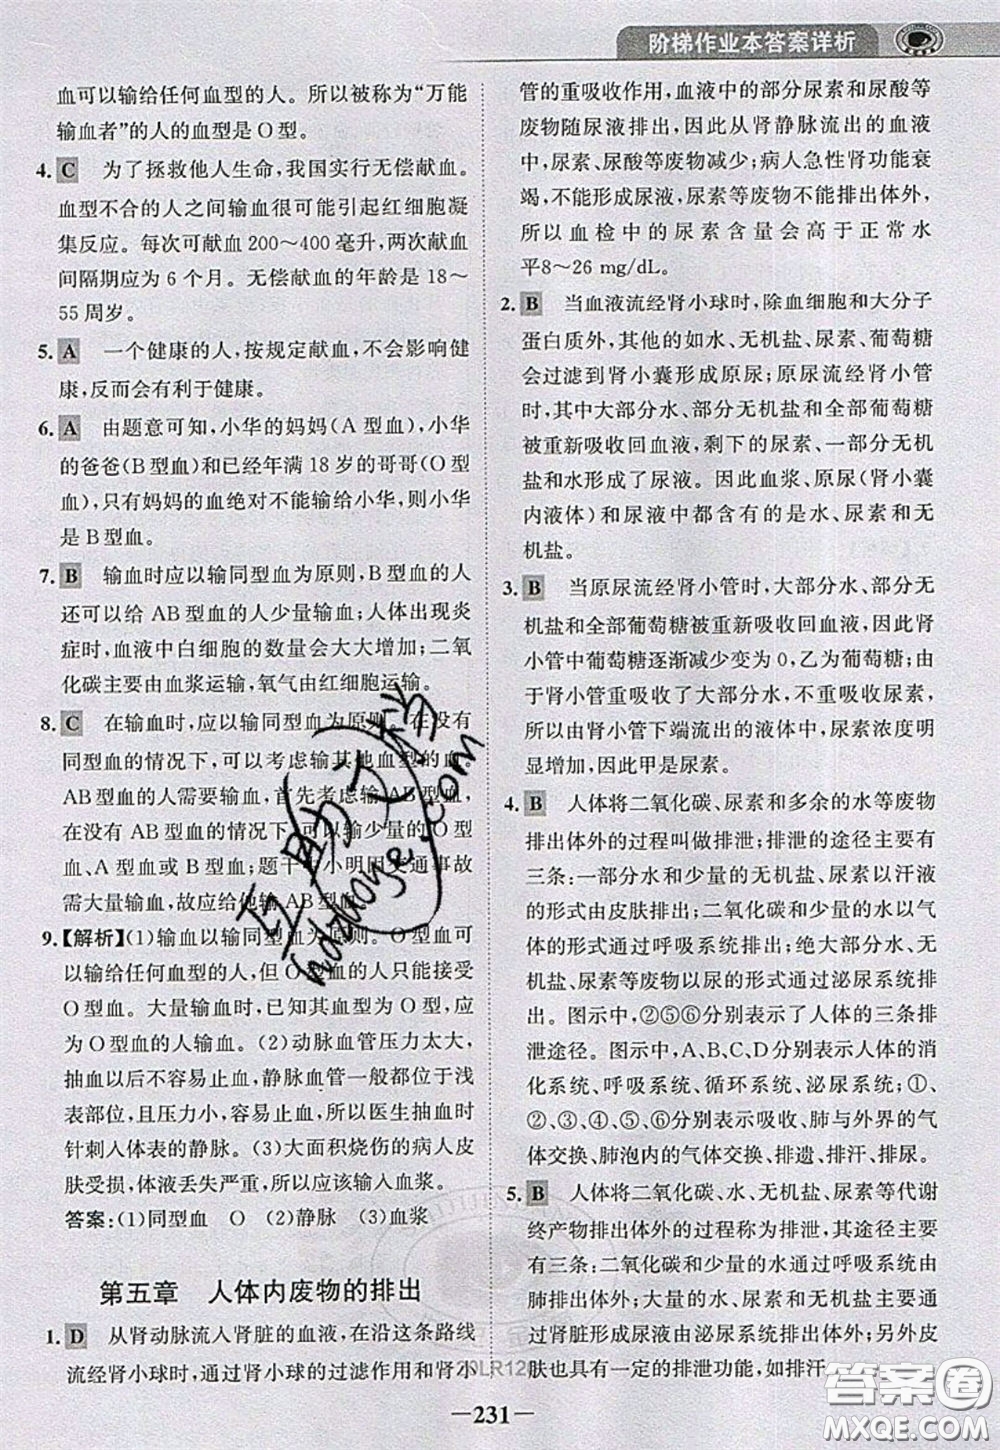 阶梯作业本答案详析
血可以输给任何血型的人。所以被称为“万能
输血者”的人的血型是 O 型。
4. C 为了拯救他人生命,我国实行无偿献血。
血型不合的人之间输血很可能引起红细胞凝
集反应。每次可献血 200～400 毫升,两次献血
间隔期应为 6 个月。无偿献血的年龄是 18～
55 周岁。
5. A 一个健康的人,按规定献血,不会影响健
康,反而会有利于健康。
6. A 由题意可知,小华的妈妈(A 型血)、小华
的爸爸(B 型血)和已经年满 18 岁的哥哥(O 型
血),只有妈妈的血绝对不能输给小华,则小华
是 B 型血。
7. B 输血时应以输同型血为原则,B 型血的人
还可以给 AB 型血的人少量输血;人体出现炎
症时,血液中白细胞的数量会大大增加;二氧
化碳主要由血浆运输,氧气由红细胞运输。
8. C 在输血时,应以输同型血为原则。在没有
同型血的情况下,可以考虑输其他血型的血。
AB 型血的人需要输血,首先考虑输 AB 型血,
在没有 AB 型血的情况下,可以输少量的 O 型
血、A 型血或 B 型血;题干中小明因交通事故
需大量输血,故应给他输 AB 型血。
9.【解析】(1)输血以输同型血为原则。O 型血可
以输给任何血型的人,但 O 型血的人只能接受
O 型血。大量输血时,已知某人是 O 型血,应
为 O 型血的人输血。(2)动脉血管压力太大,
抽血以后不容易止血,静脉血管一般都在浅
表部位,且压力小,容易止血,所以医生抽血时
针刺人体表的静脉。(3)大面积烧伤的病人皮
肤受损严重,体液丢失严重,所以应该输入血浆。
答案:(1)同型血 O (2)静脉 (3)血浆
第五章 人体内废物的排出
1. D 从肾动脉流入肾脏的血液,在沿这条路线
流经肾小球时,通过肾小球的过滤作用和肾小
管的重吸收作用,血液中的部分尿素和尿酸等
废物随尿液排出,因此从肾静脉流出的血液
中,尿素、尿酸等废物减少;病人急性肾功能衰
竭,不能形成尿液,尿素等废物不能排出体外,
所以血检中的尿素含量会高于正常水
平8～26 mg/dL。
2. B 当血液流经肾小球时,除血细胞和大分子
蛋白质外,其他的如水、无机盐、尿素、葡萄糖
会过滤到肾小囊形成原尿;原尿流经肾小管
时,其中大部分水、部分无机盐和全部葡萄糖
被重新吸收回血液,剩下的尿素、一部分无机
盐和水形成了尿液。因此血浆、原尿(肾小囊
内液体)和尿液中都含有的是水、尿素和无
机盐。
3. B 当原尿流经肾小管时,大部分水、部分无
机盐和全部葡萄糖被重新吸收回血液,因此肾
小管中葡萄糖逐渐减少变为 0,乙为葡萄糖;由
于肾小管重吸收了大部分水,不重吸收尿素,
因此由肾小管下端流出的液体中,尿素浓度明
显增加,因此甲是尿素。
4. B 人体将二氧化碳、尿素和多余的水等废物
排出体外的过程叫做排泄;排泄的途径主要有
三条:一部分水和少量的无机盐、尿素以汗液
的形式由皮肤排出;二氧化碳和少量的水以气
体的形式通过呼吸系统排出;绝大部分水、无
机盐、尿素等废物以尿的形式通过泌尿系统排
出。图示中,②⑤⑥分别表示了人体的三条排
泄途径。图示中,A、B、C、D分别表示人体的消
化系统、呼吸系统、循环系统、泌尿系统;①、
②、③、④、⑤、⑥分别表示吸收、肺与外界的气
体交换、肺泡内的气体交换、排遗、排汗、排尿。
5. B 人体将二氧化碳、水、无机盐、尿素等代谢
终产物排出体外的过程称为排泄,其途径主要
有三条:二氧化碳和少量的水通过呼吸系统的
肺排出;大量的水、无机盐和尿素等由泌尿系
统的肾脏形成尿液以后由泌尿系统排出;另外皮
肤也具有一定的排泄功能,如排汗
20LR12
—231—
互助文学
hdzuoye.com
答案圈
MXQE.COM